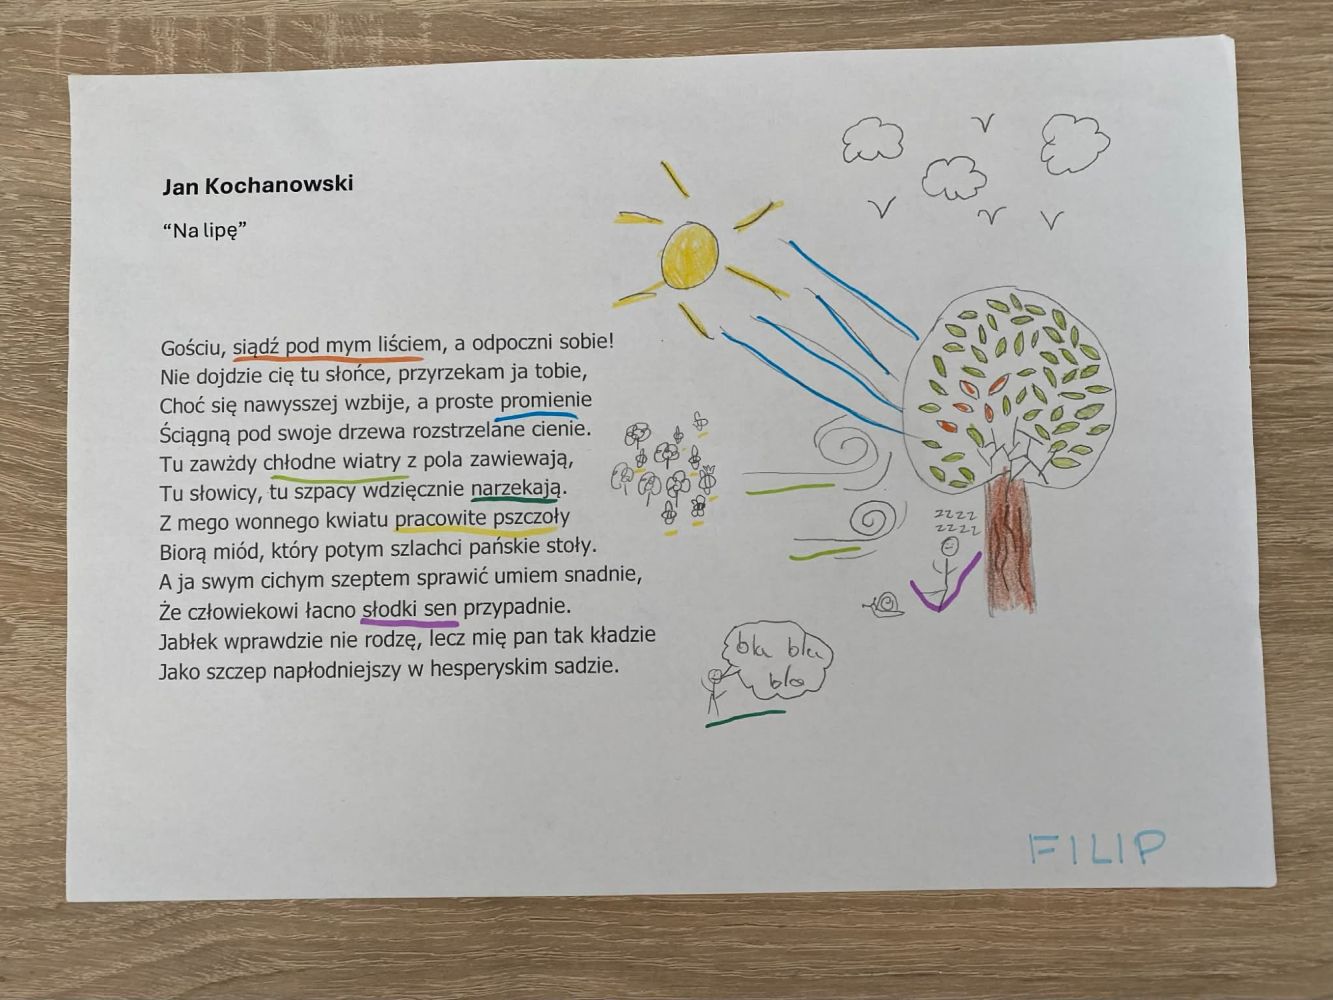 Jan Kochanowski
“Na lipę”
Gościu, siądź pod mym liściem, a odpoczni sobie!
Nie dojdzie cię tu słońce, przyrzekam ja tobie,
Choć się nawysszej wzbije, a proste promienie
Ściągną pod swoje drzewa rozstrzelane cienie.
Tu zawżdy chłodne wiatry z pola zawiewają,
Tu słowicy, tu szpacy wdzięcznie narzekają.
Z mego wonnego kwiatu pracowite pszczoły
Biorą miód, który potym szlachci pańskie stoły.
A ja swym cichym szeptem sprawić umiem snadnie,
Że człowiekowi łacno słodki sen przypadnie.
Jabłek wprawdzie nie rodzę, lecz mię pan tak kładzie
Jako szczep napłodniejszy w hesperyskim sadzie.
zzzz
zzzz
bla bla
bla
FILIP